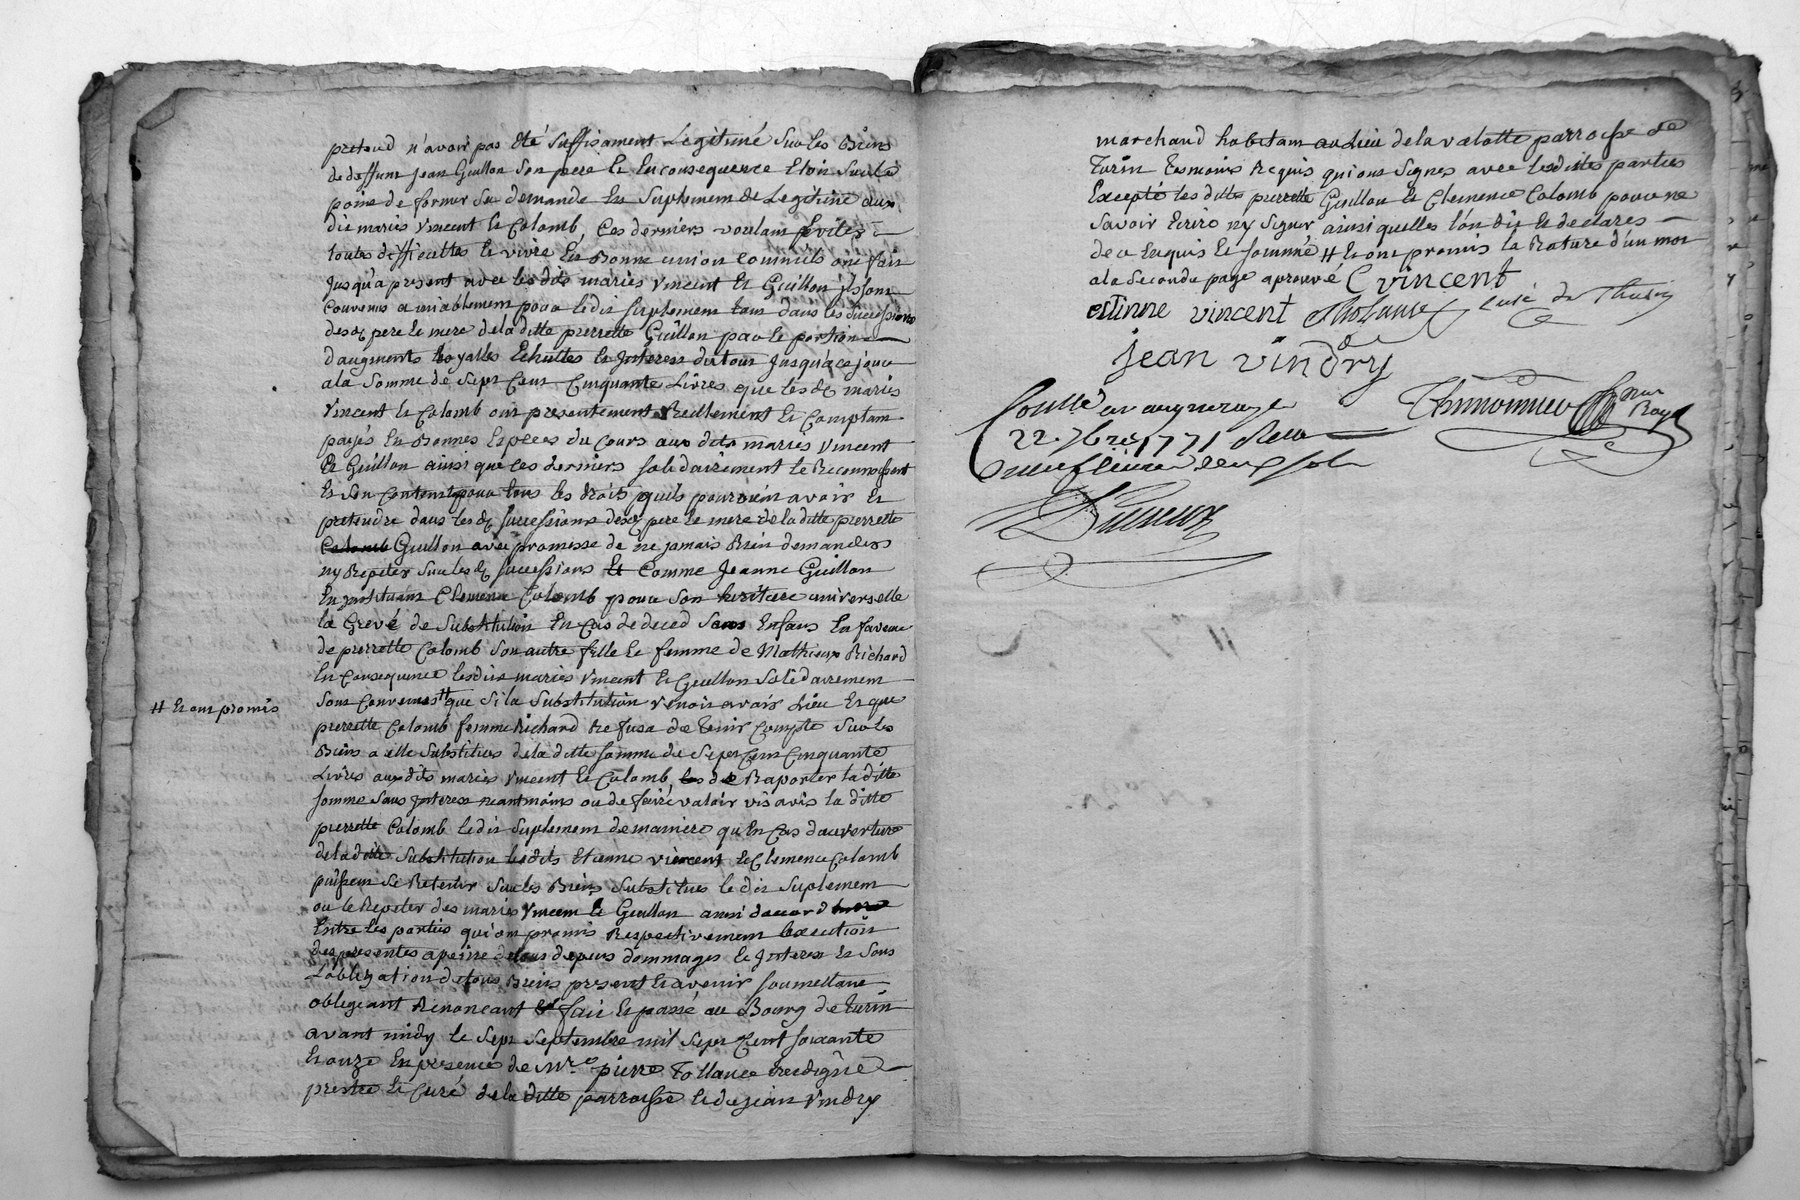 pretend n'avoir pas été suffisament Legitimé sur les Biens
de deffunt jean Guillon son pere Et En consequence Etoit sur le
point de former sa demande En suplement de Legitime aux
dit mariés vincent Et Colomb, Ces derniers voulant Eviter
toutes difficultes Et vivre En Bonne union comme ils ont fait
jusqu'a present avec lesdits mariés vincent Et Guillon ils sont
convenus amiablement pour le dit suplement tant dans les successions
desd pere Et mere dela ditte pierrette Guillon par le portion
d'augments Royalles Echuttes Et Interest du tout jusqu'a ce jour
a la somme de sept Cent Cinquante Livres que lesd mariés
vincent Et Colomb ont presentement Reellement Et Comptant
payés En Bonnes Especes du Cours aux dits mariés vincent
Et Guillon ainsi que ces derniers solidairement le Reconnoissent
Et son Contents pour tous les droits qu'ils pourroint avoir Et
pretendre dans lesd successions desd pere Et mere de la ditte pierrette
Colomb Guillon avec promesse de ne jamais Rien demander
ny Repeter sur lesd successions Et Comme Jeanne Guillon
En instituant Clemence Colomb pour son heritiere universelle
la Grevé de Substitution En Cas de deced sans Enfans En faveur
de pierrette Colomb son autre fille Et femme de Mathieux Richard
En Consequence lesdits mariés vincent Et Guillon solidairement
sont Convenus # que si la Substitution venoit avoir Lieu Et que
# Et ont promis
pierrette Colomb femme Richard Refusa de tenir Compte sur les
Biens a elle substitues dela ditte somme de Sept Cent Cinquante
Livres aux dits mariés vincent Et Colomb, les de Raporter la ditte
somme sans Interest neantmoins ou de faire valoir vis avis la ditte
pierrette Colomb le dit suplement de maniere qu'En Cas d'ouverture
dela ditte Substitution lesdits Etienne vincent Et Clemence Colomb
puissent se Retenir sur les Biens substitues le dit suplement
ou le Repeter des mariés vincent Et Guillon ainsi d'accord
Entre les parties qui ont promis Respectivement Execution
des presentes a peine de tous depens dommages Et Interest Et sous
L'obligation de tous Biens present Et avenir soumettant
obligeant Renoncant Et fait Et passé au Bourg de turin
avant midy le sept septembre mil sept Cent soixante
Et onze En presence de Mre pierre Tollance
prestre Et Curé dela ditte parroisse Et de jean vindry
marchand habitant au Lieu de la valotte parroisse de
turin temoins Requis qui ont signes avec lesdittes parties
Excepté les dittes pierrette Guillon Et Clemence Colomb pour ne
savoir Ecrire ny signer ainsi quelles l'on dit Et declares
de ce Enquis Et sommé # Et ont promis la Rature d'un mot
a la seconde page aprouvé C vincent
etienne vincent Tholance curé de Thurin
jean vindry
Thimonnier Nore Roy
Contlé
22. 7bre 1771 Reçu
neuf livres deux sols